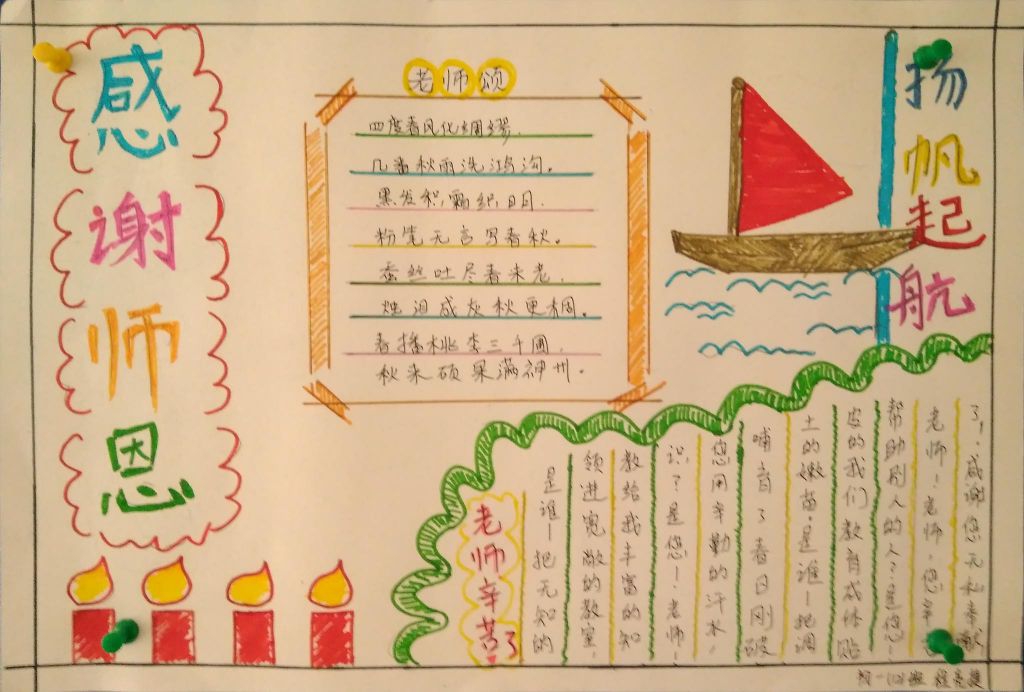 感谢师恩
老师颂
四度春风化绸缪,
几番秋雨洗鸿沟。
黑发积霜织日月,
粉笔无言写春秋。
蚕丝吐尽春未老,
烛泪成灰秋更稠。
春播桃李三千圃,
秋来硕果满神州。
扬帆起航
老师辛苦了
是谁—把无知的
领进宽敞的教室,
教给我丰富的知
识?是您!老师!
您用辛勤的汗水,
哺育了春日刚破
土的嫩苗。是谁—把调
皮的我们教育成体贴
帮助别人的人?是您!
老师!老师,您辛
了!感谢您无私奉献
初一(12)班